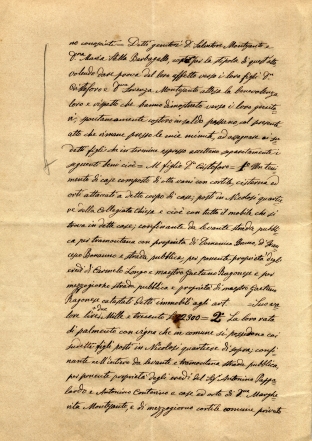 no conoscinti — Detti genitori D. Salvatore Montesanti e
D.ª Maria Stella Barbagallo, per la stipola di quest'atto
volendo dare prova del loro affetto verso i loro figli D.
Cristofero e D.ª Lorenza Montesanti attesa la benevolenza
loro e rispetto che hanno dimostrato verso i loro genito
ri, spontaneamente costoro in solido passano al presente
atto che rimane presso le mie minute, ad assegnare ai su
detti figli che in termine espresso accettano, separatamente i
seguenti beni cioè = Al figlio D. Cristofero = 1° Un tene
mento di case composto di otto vani con cortile, cisterna ed
orto attaccato a detto corpo di case, posto in Nicolosi quartie
re della Collegiata Chiesa e cioè con tutto il mobile che si
trova in dette case; confinante da levante strada pubbli
ca per tramontana con proprietà di Domenico Bruno, di
Bonanno e strada pubblica; per ponente proprietà degli
eredi di Carmelo Longo e mastro Gaetano Ragonese e per
mezzogiorno strada pubblica e proprietà di mastro Gaetano
Ragonese catastati detti immobili agli art. — Suo va
lore lire due mille e trecento 2300 = 2° La loro rata
di palmento con vigne che in comune si possedono coi
sudetti figli posti in Nicolosi quartiere di confi
nante nell'intero da levante e tramontana strada pubblica,
per ponente proprietà degli eredi del Sig. Antonino
lardo e Antonino Contarino e case ed orto di D.ª Marghe
rita Montesanti, e di mezzogiorno cortile comune, privato